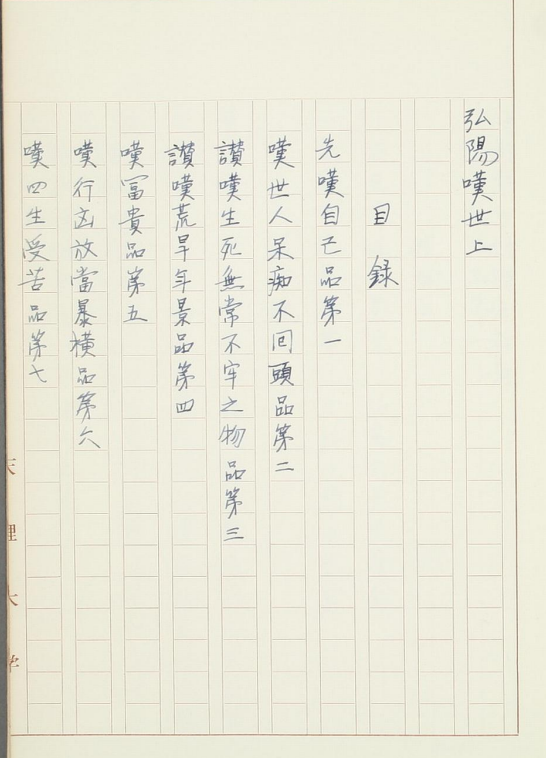 弘陽嘆世上
目録
先嘆自己品第一
嘆世人呆痴不回頭品第二
讃嘆生死無常不牢之物品第三
讃嘆荒旱年景品第四
嘆冨貴品第五
嘆行凶放當暴横品第六
嘆四生受苦品第七
天理大学